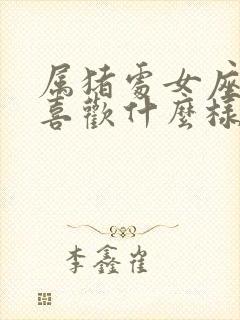 属猪處女座
喜歡什麼樣
李鑫崔